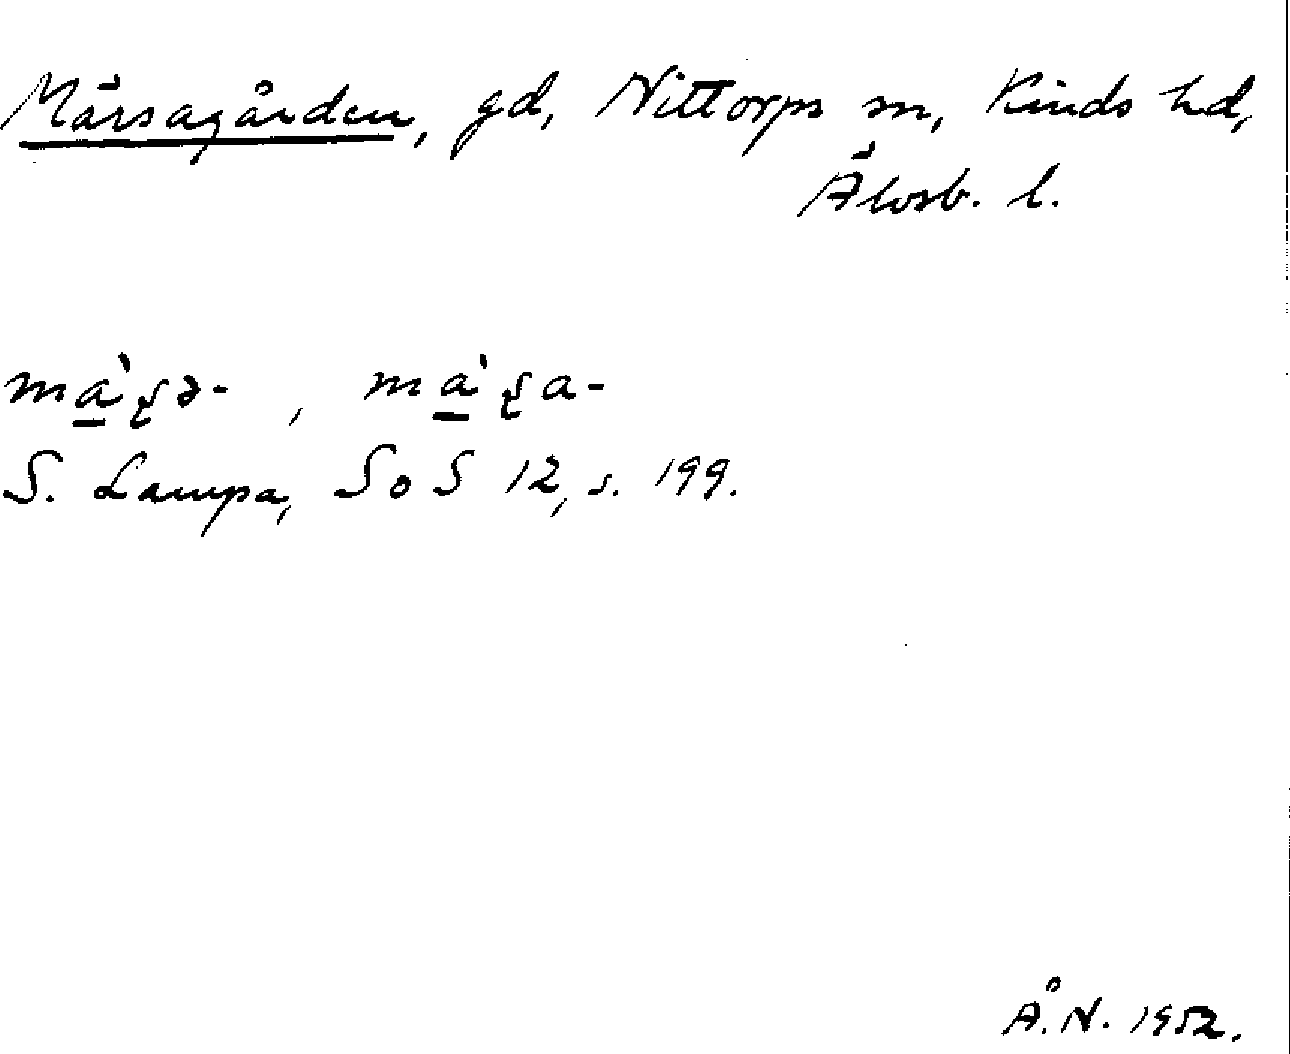 Märsagården, gd, Nittorps sn, Kinds hd,
Älvsb. l.
mà̱ʂə- , mà̱ʂa-
S. Lampa, SoS 12, s. 199.
Å.N. 1952.